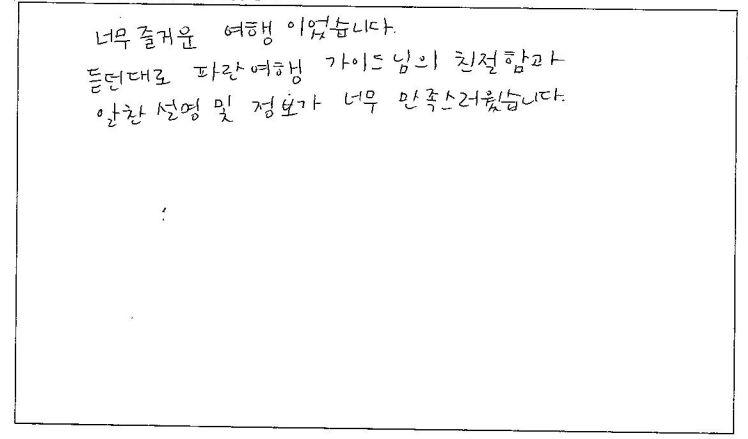 너무 즐거운 여행 이었습니다.
듣던대로 파란여행 가이드님의 친절함과
알찬 설명 및 정보가 너무 만족스러웠습니다.